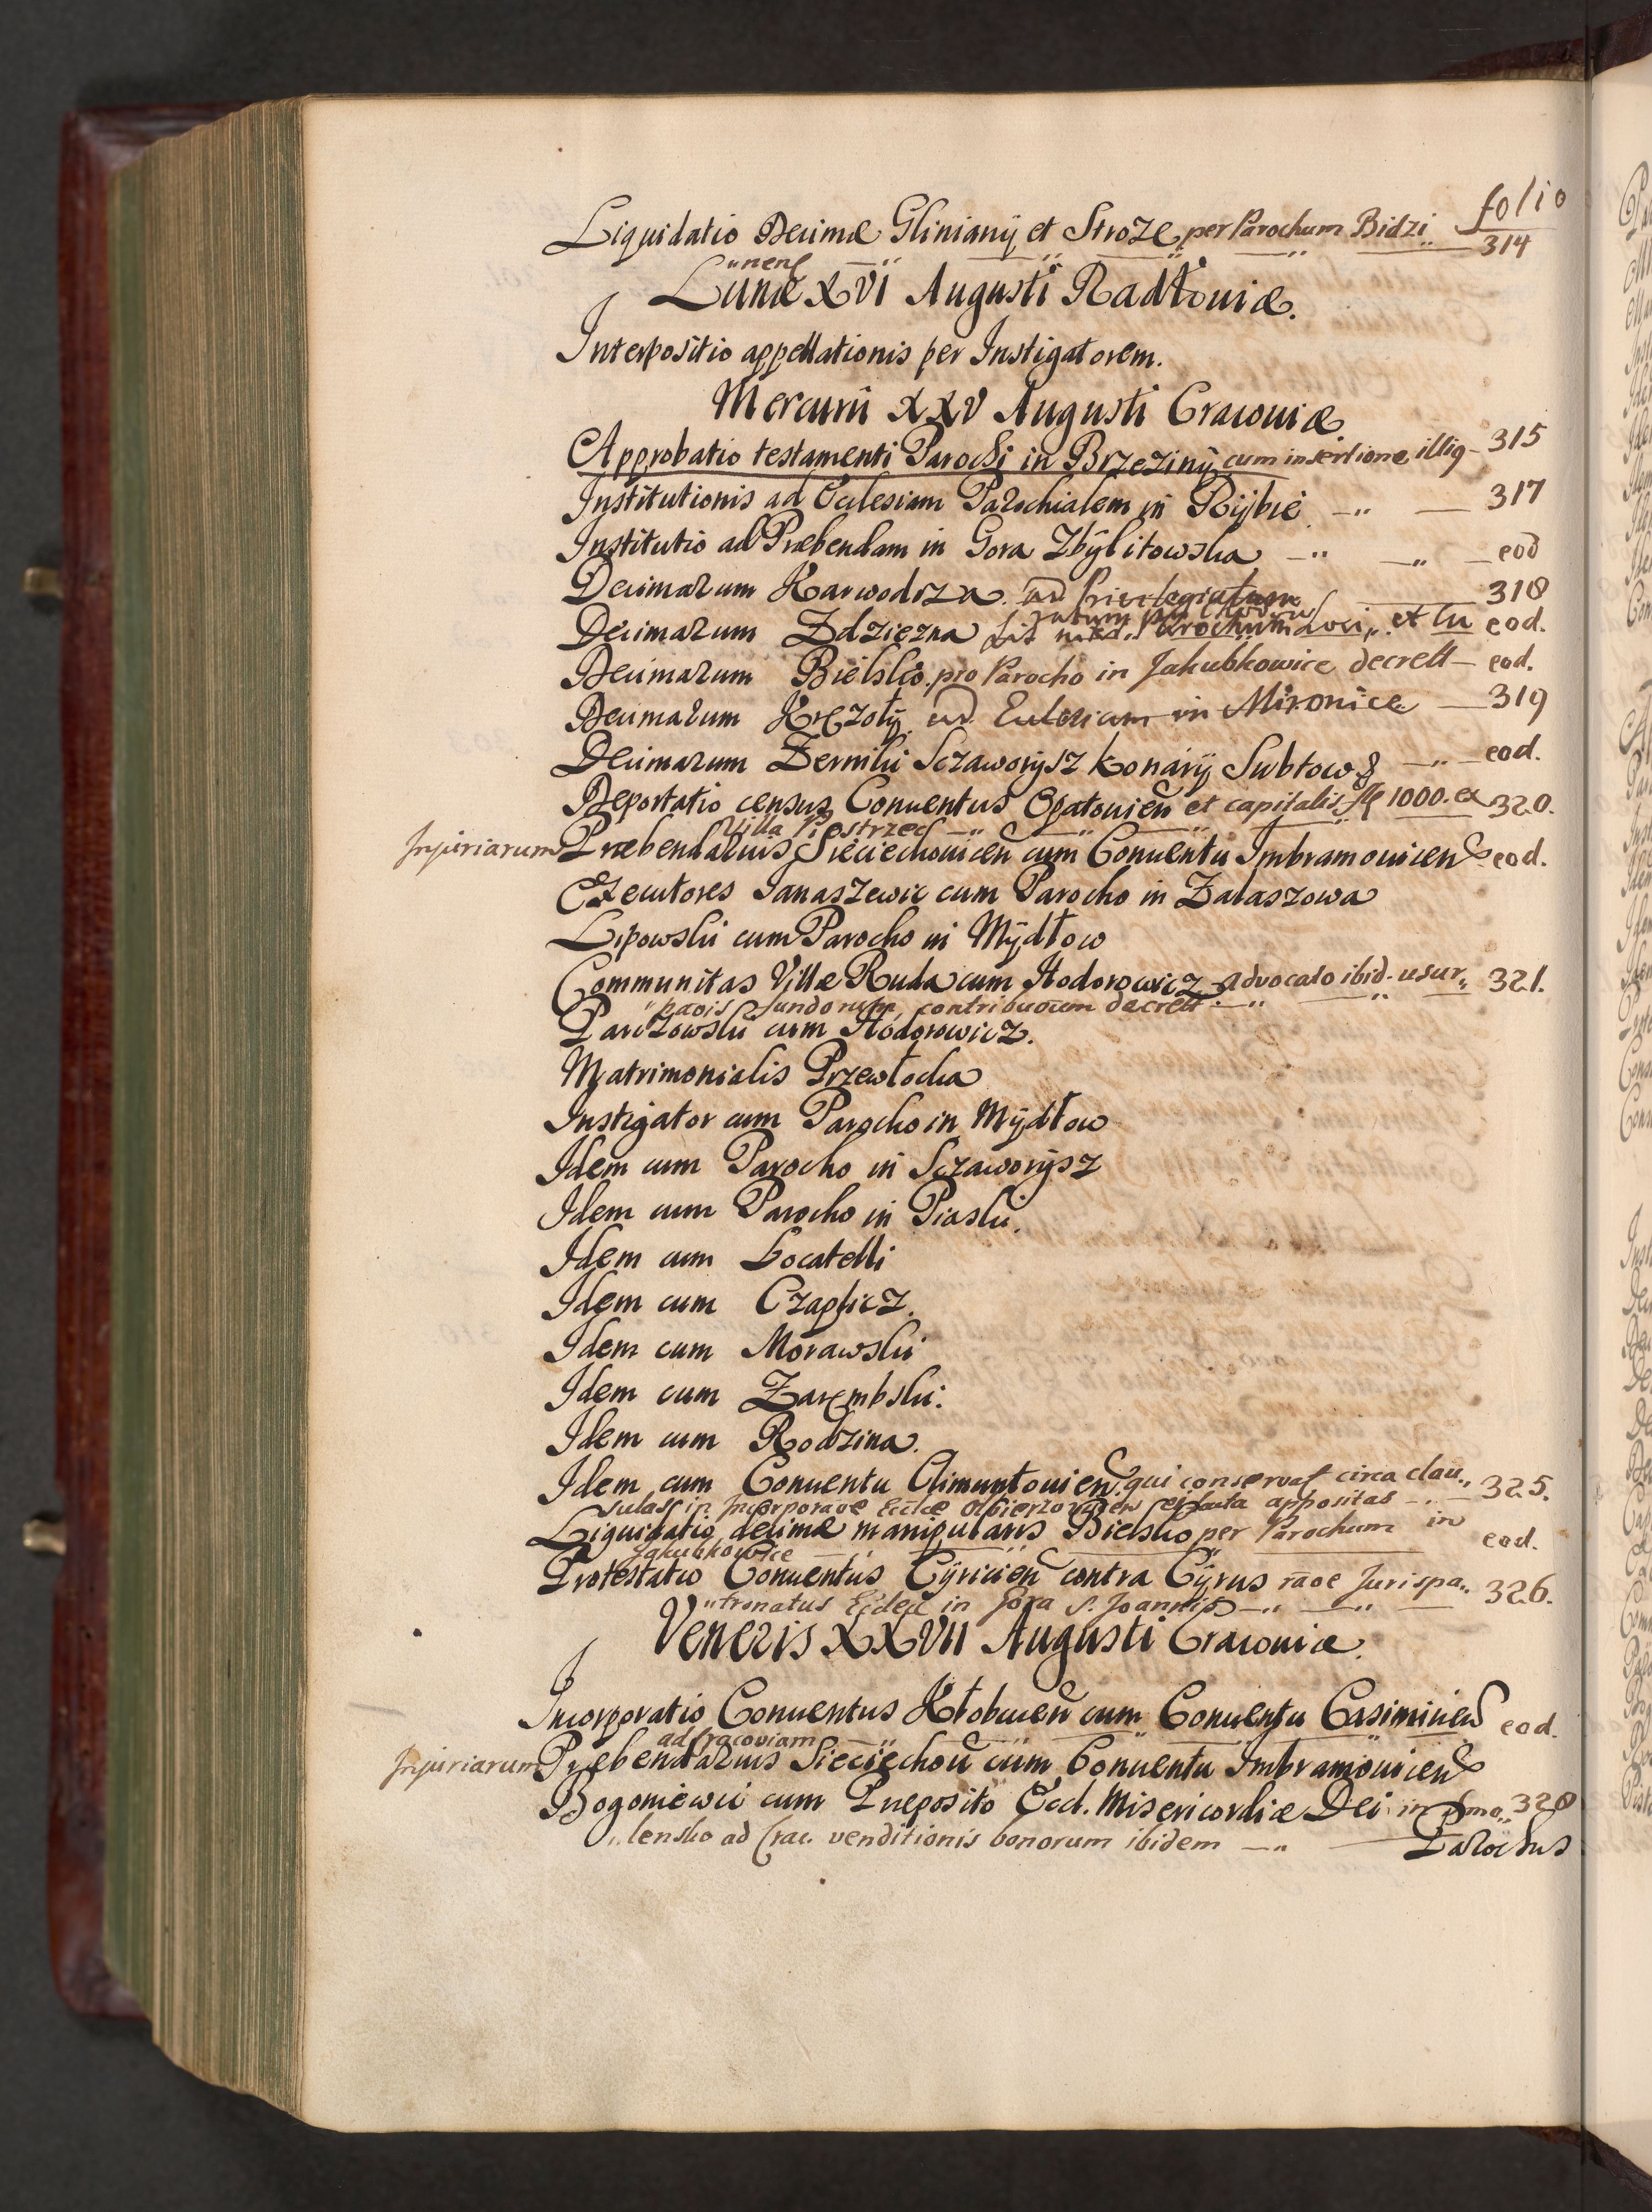 folio
Liquidatio Decimæ Gliniany et Stroze per Parochum Bidzi 314
"nens
Lunæ XVI Augusti Radłouiæ.
Interpositio appellationis per Instigatorem.
Mercurii XXV Augusti Cracouiæ
Approbatio testamenti Parochi in Brzeziny cum insertione illig 315
Institutionis ad Ecclesiam Parochialem in Rybie 317
Institutio ad Præbendam in Gora Zbylitowska eod
Decimarum Karwodrza ad Privilegiatum 318
Decimarum Zdziezna et lu eod.
Decimarum Bielsko pro Parocho in Jakubkowice decrett eod.
Decimarum Kręzoły ad Ecclesiam in Mironice 319
Decimarum Sczaworysz Konary Subłow eod.
Reportatio census Conuentus Opatouien et capitalis fl 1000. ex 320.
villa Piostrzec
Injuriarum Præbendarius Sieciechouicen cum Conuentu Imbramouicen eod.
Executores Janaszewic cum Parocho in Zalaszowa
Lipowski cum Parocho in Mydłow
Communitas Villæ Ruda cum Hodorowicz advocato ibid. usur" 321.
"patis fundorum, contribuoum decrett
Parczowski cum Hodorowicz.
Matrimonialis Przewłocka
Instigator cum Parocho in Mydłow
Idem cum Parocho in Sczaworysz
Idem cum Parocho in Piaski.
Idem cum Locatelli
Idem cum Czaplicz.
Idem cum Morawski
Idem cum Zarembski:
Idem cum Rodzina.
Idem cum Conuentu Climuntouien. qui conservat circa clau" 325.
sulas in Incorporaõe Ecclæ appositas
Liquidatio decimæ manipularis Bielsko per Parochum in eod.
Jakubkowice
Protestatio Conuentus Cyricien contra Cyrus rãoe Jurispa" 326.
"tronatus Ecclæ in Gora S. Joannis
Veneris XXVII Augusti Cracouiæ.
Incorporatio Conuentus Kłobucen cum Conuentu Casimirien eod.
ad Cracoviam
Injuriarum Præbendarius Sieciechou cum Conuentu Imbramouicen
Bogoniewic cum Præposito Eccl. Misericordiæ Dei in Smo" 328
"lensko ad Crac. venditionis bonorum ibidem
Parochus